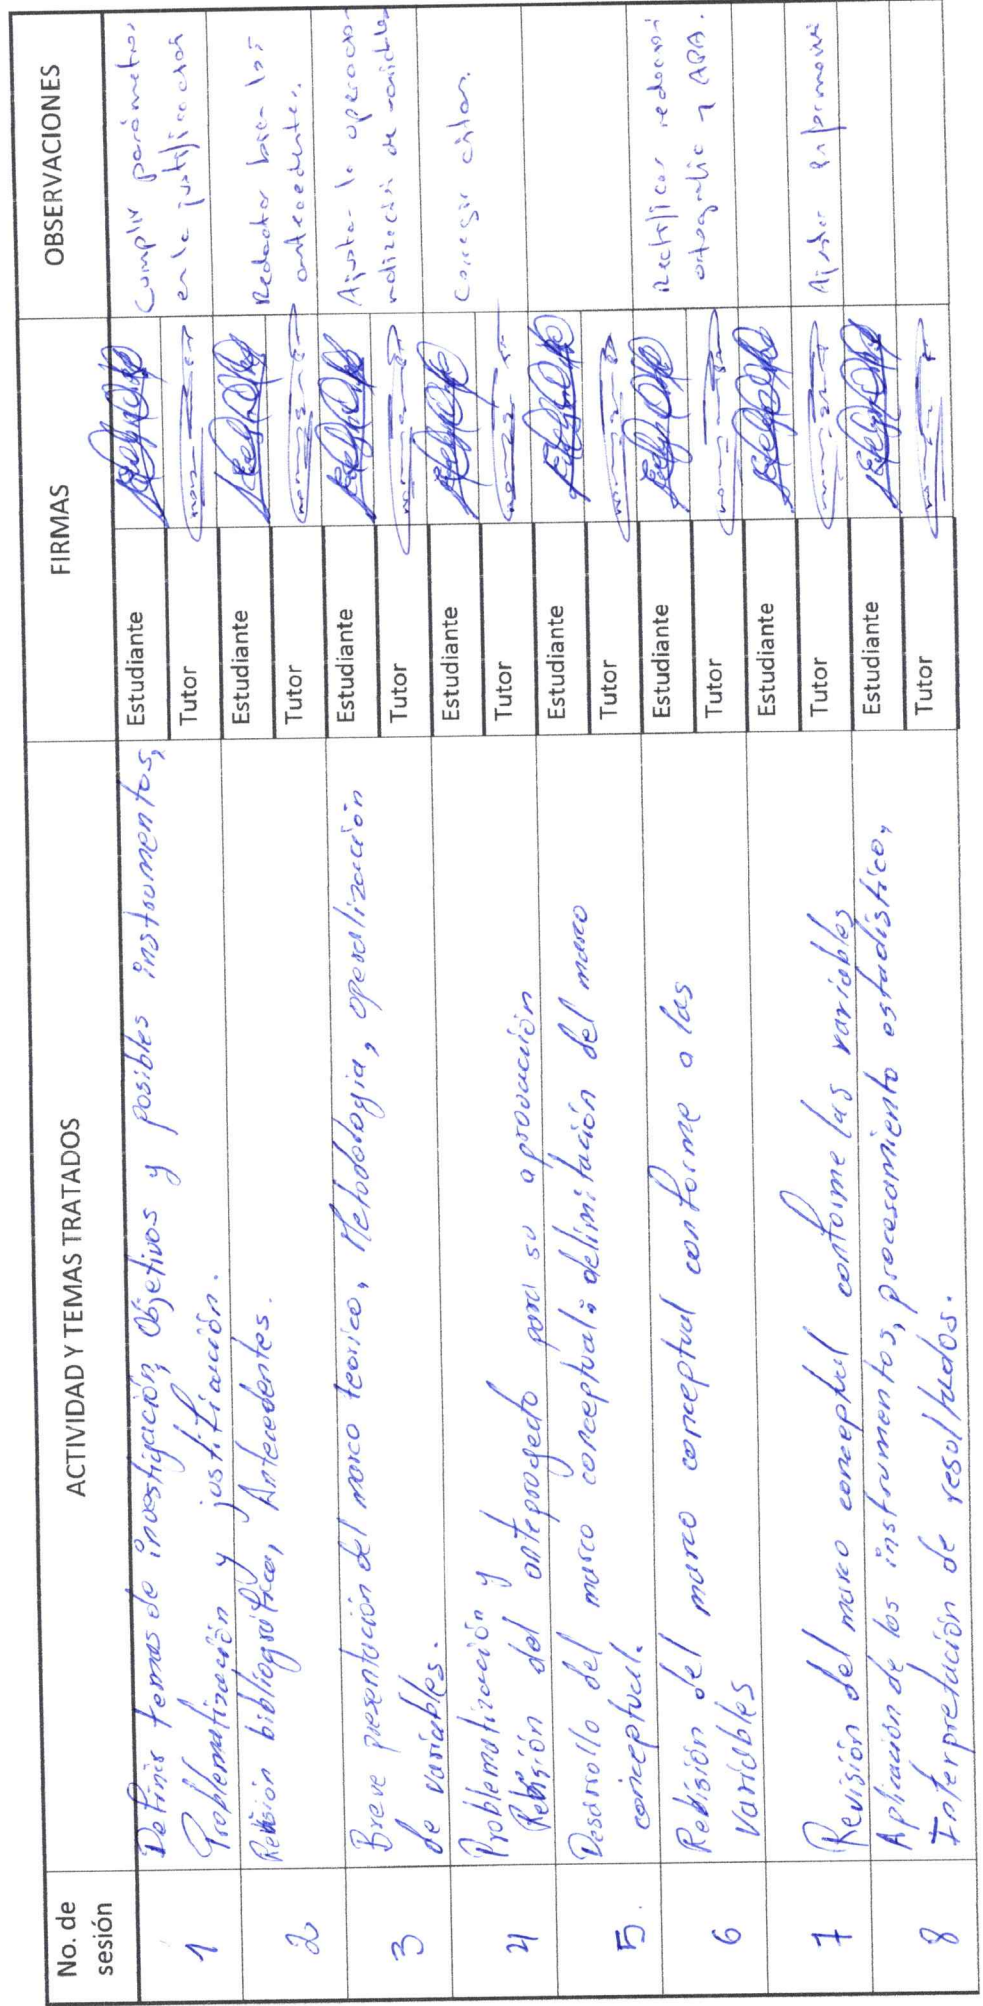 No. de sesión
ACTIVIDAD Y TEMAS TRATADOS
FIRMAS
OBSERVACIONES
1
Definir temas de investigación, Objetivos y posibles instrumentos,
Problematización y justificación.
Estudiante
Tutor
Cumplir parámetros
en la justificación
2
Revisión bibliográfica, Antecedentes.
Estudiante
Tutor
Redactar bien los
antecedentes.
3
Breve presentación del marco teorico, Metodologia, operalización
de variables.
Estudiante
Tutor
Ajustar la operacio-
nalización de variables
4
Problematización y
Revisión del anteproyecto para su aprovación
Estudiante
Tutor
Corregir citas.
5.
Desarrollo del marco conceptual: delimitación del marco
conceptual.
Estudiante
Tutor
6
Revisión del marco conceptual conforme a las
variables
Estudiante
Tutor
Rectificar redacción
ortografia y APA.
7
Revisión del marco conceptual conforme las variables
Estudiante
Tutor
Ajustar
8
Aplicación de los instrumentos, procesamiento estadístico,
Interpretación de resultados.
Estudiante
Tutor